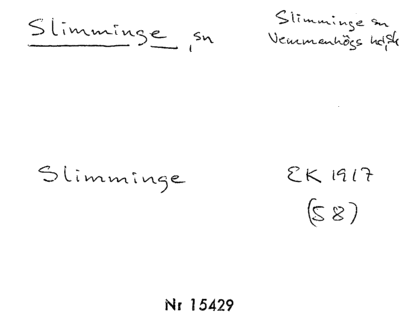 Slimminge, sn
Slimminge sn
Vemmenhögs hd, Sk
Slimminge
EK 1917
(58)
Nr 15429